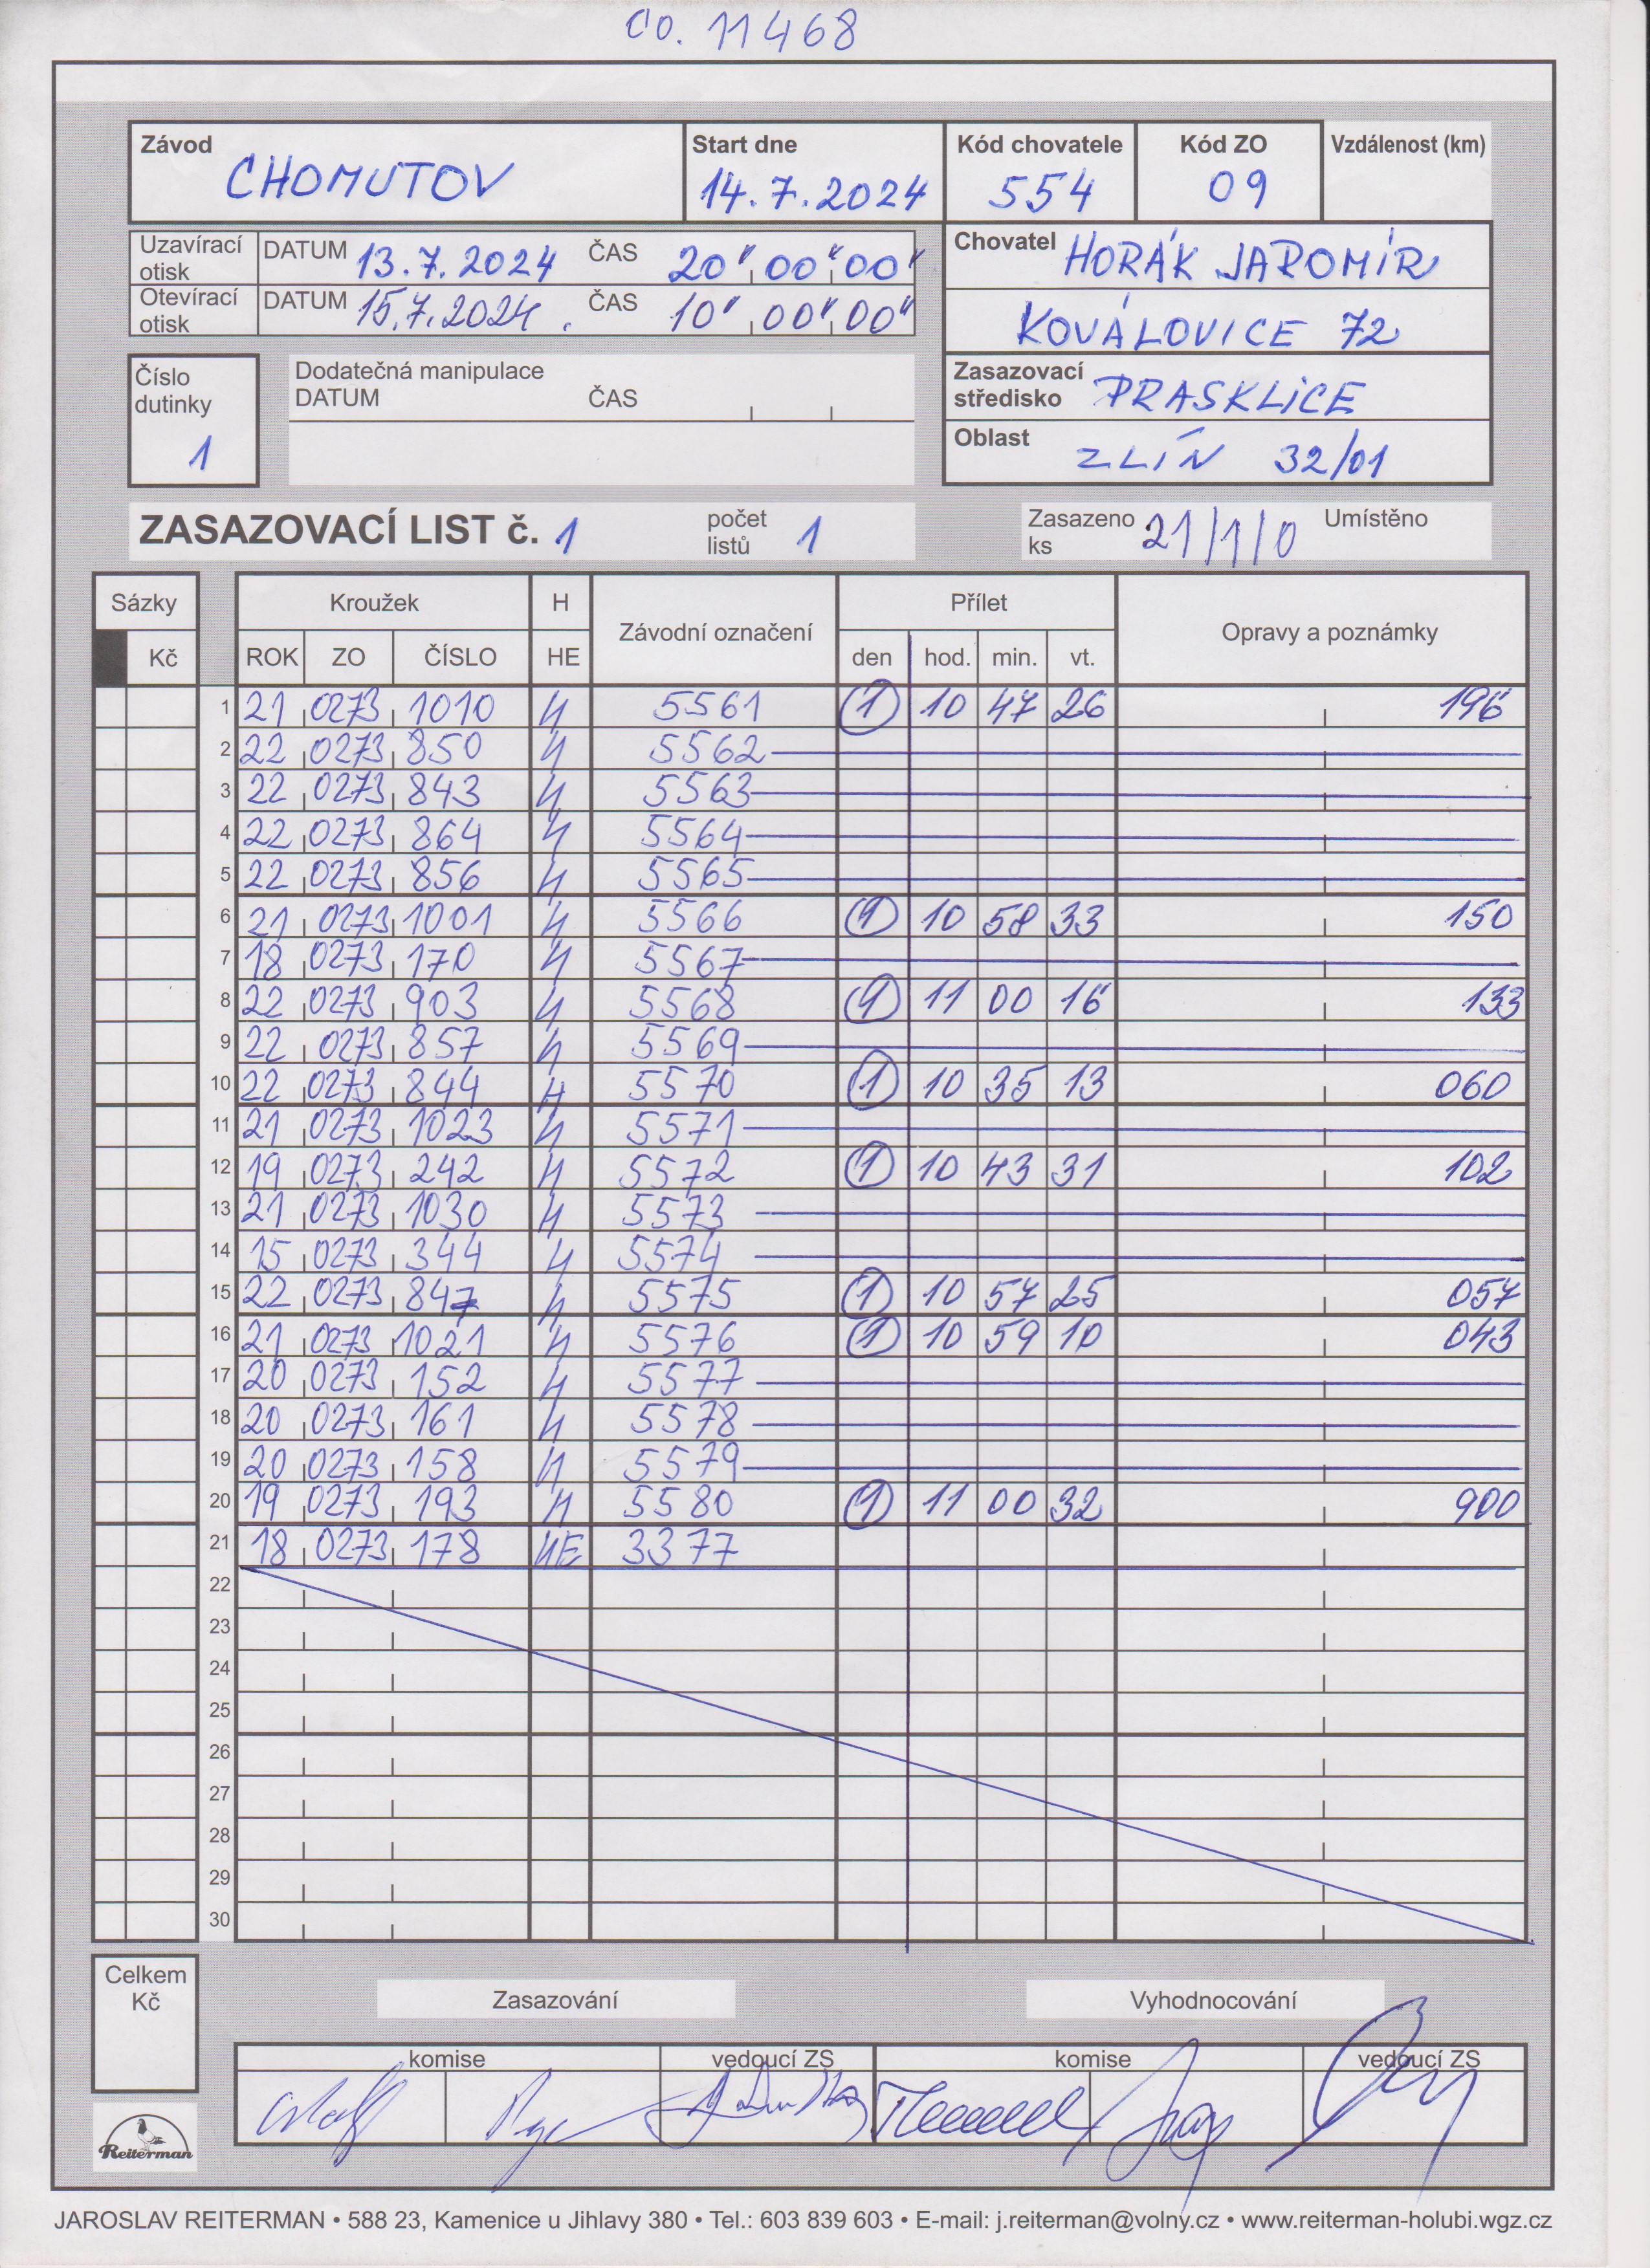 čo. 11468
Závod CHOMUTOV Start dne 14.7.2024 Kód chovatele 554 Kód ZO 09 Vzdálenost (km)
Uzavírací otisk DATUM 13.7.2024 ČAS 20" 00" 00"
Otevírací otisk DATUM 15.7.2024. ČAS 10" 00" 00"
Chovatel HORÁK JAROMÍR
KOVÁLOVICE 72
Číslo dutinky 1
Dodatečná manipulace
DATUM ČAS
Zasazovací středisko PRASKLICE
Oblast ZLÍN 32/01
ZASAZOVACÍ LIST č. 1 počet listů 1 Zasazeno ks 21/1/0 Umístěno
Sázky Kroužek H Závodní označení Přílet Opravy a poznámky
Kč ROK ZO ČÍSLO HE den hod. min. vt.
1 21 0273 1010 H 5561 1 10 47 26 196
2 22 0273 850 H 5562
3 22 0273 843 H 5563
4 22 0273 864 H 5564
5 22 0273 856 H 5565
6 21 0273 1001 H 5566 1 10 58 33 150
7 18 0273 170 H 5567
8 22 0273 903 H 5568 1 11 00 16 133
9 22 0273 857 H 5569
10 22 0273 844 H 5570 1 10 35 13 060
11 21 0273 1023 H 5571
12 19 0273 242 H 5572 1 10 43 31 102
13 21 0273 1030 H 5573
14 15 0273 344 H 5574
15 22 0273 847 H 5575 1 10 57 25 057
16 21 0273 1021 H 5576 1 10 59 10 043
17 20 0273 152 H 5577
18 20 0273 161 H 5578
19 20 0273 158 H 5579
20 19 0273 193 H 5580 1 11 00 32 900
21 18 0273 178 HE 3377
22
23
24
25
26
27
28
29
30
Celkem Kč
Zasazování Vyhodnocování
komise vedoucí ZS komise vedoucí ZS
Reiterman
JAROSLAV REITERMAN • 588 23, Kamenice u Jihlavy 380 • Tel.: 603 839 603 • E-mail: j.reiterman@volny.cz • www.reiterman-holubi.wgz.cz